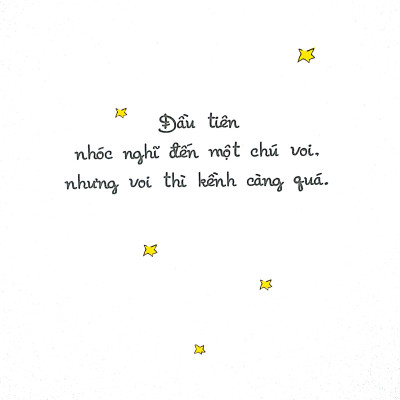 Đầu tiên
nhóc nghĩ đến một chú voi,
nhưng voi thì kềnh càng quá.